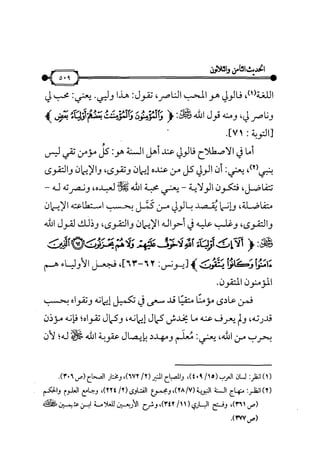 الحديث الثامن والثلاثون
٥٠٩
اللغة(١)، فالولي هو المحب الناصر، تقول: هذا وليي. يعني: محب لي
وناصر لي، ومنه قول الله ﷻ: ﴿وَالْمُؤْمِنُونَ وَالْمُؤْمِنَتُ بَعْضُهُمْ أَوْلِيَاءُ بَعْضٍ﴾
[التوبة: ٧١].
أما في الاصطلاح فالولي عند أهل السنة هو: كل مؤمن تقي ليس
بنبي(٢)، يعني: أن الولي كل من عنده إيمان وتقوى، والإيمان والتقوى
تتفاضل، فتكون الولاية - يعني محبة الله ﷻ لعبده، ونصرته له -
متفاضلة، وإنما يُقصد بالولي من كَمَّل بحسب استطاعته الإيمان
والتقوى، وغلب عليه في أحواله الإيمان والتقوى، وذلك لقول الله
ﷻ: ﴿أَلَا إِنَّ أَوْلِيَاءَ اللَّهِ لَا خَوْفٌ عَلَيْهِمْ وَلَا هُمْ يَحْزَنُونَ ٦٢ الَّذِينَ
ءَامَنُوا وَكَانُوا يَتَّقُونَ﴾ [يونس: ٦٢-٦٣]، فجعل الأولياء هم
المؤمنون المتقون.
فمن عادى مؤمنًا متقيًا قد سعى في تكميل إيمانه وتقواه بحسب
قدرته، ولم يعرف عنه ما يخدش كمال إيمانه، وكمال تقواه؛ فإنه مؤذن
بحرب من الله، يعني: مُعلَم ومهدد بإيصال عقوبة الله ﷻ له؛ لأن
(١) انظر: لسان العرب (١٥/ ٤٠٩)، والمصباح المنير (٢/ ٦٧٢)، ومختار الصحاح (ص٣٠٦).
(٢) انظر: منهاج السنة النبوية (٧/ ٢٨)، ومجموع الفتاوى (٢/ ٢٢٤)، وجامع العلوم والحكم
(ص٣٦١)، وفتح الباري (١١/ ٣٤٢)، وشرح الأربعين للعلامة ابن عثيمين
(ص٣٧٧).